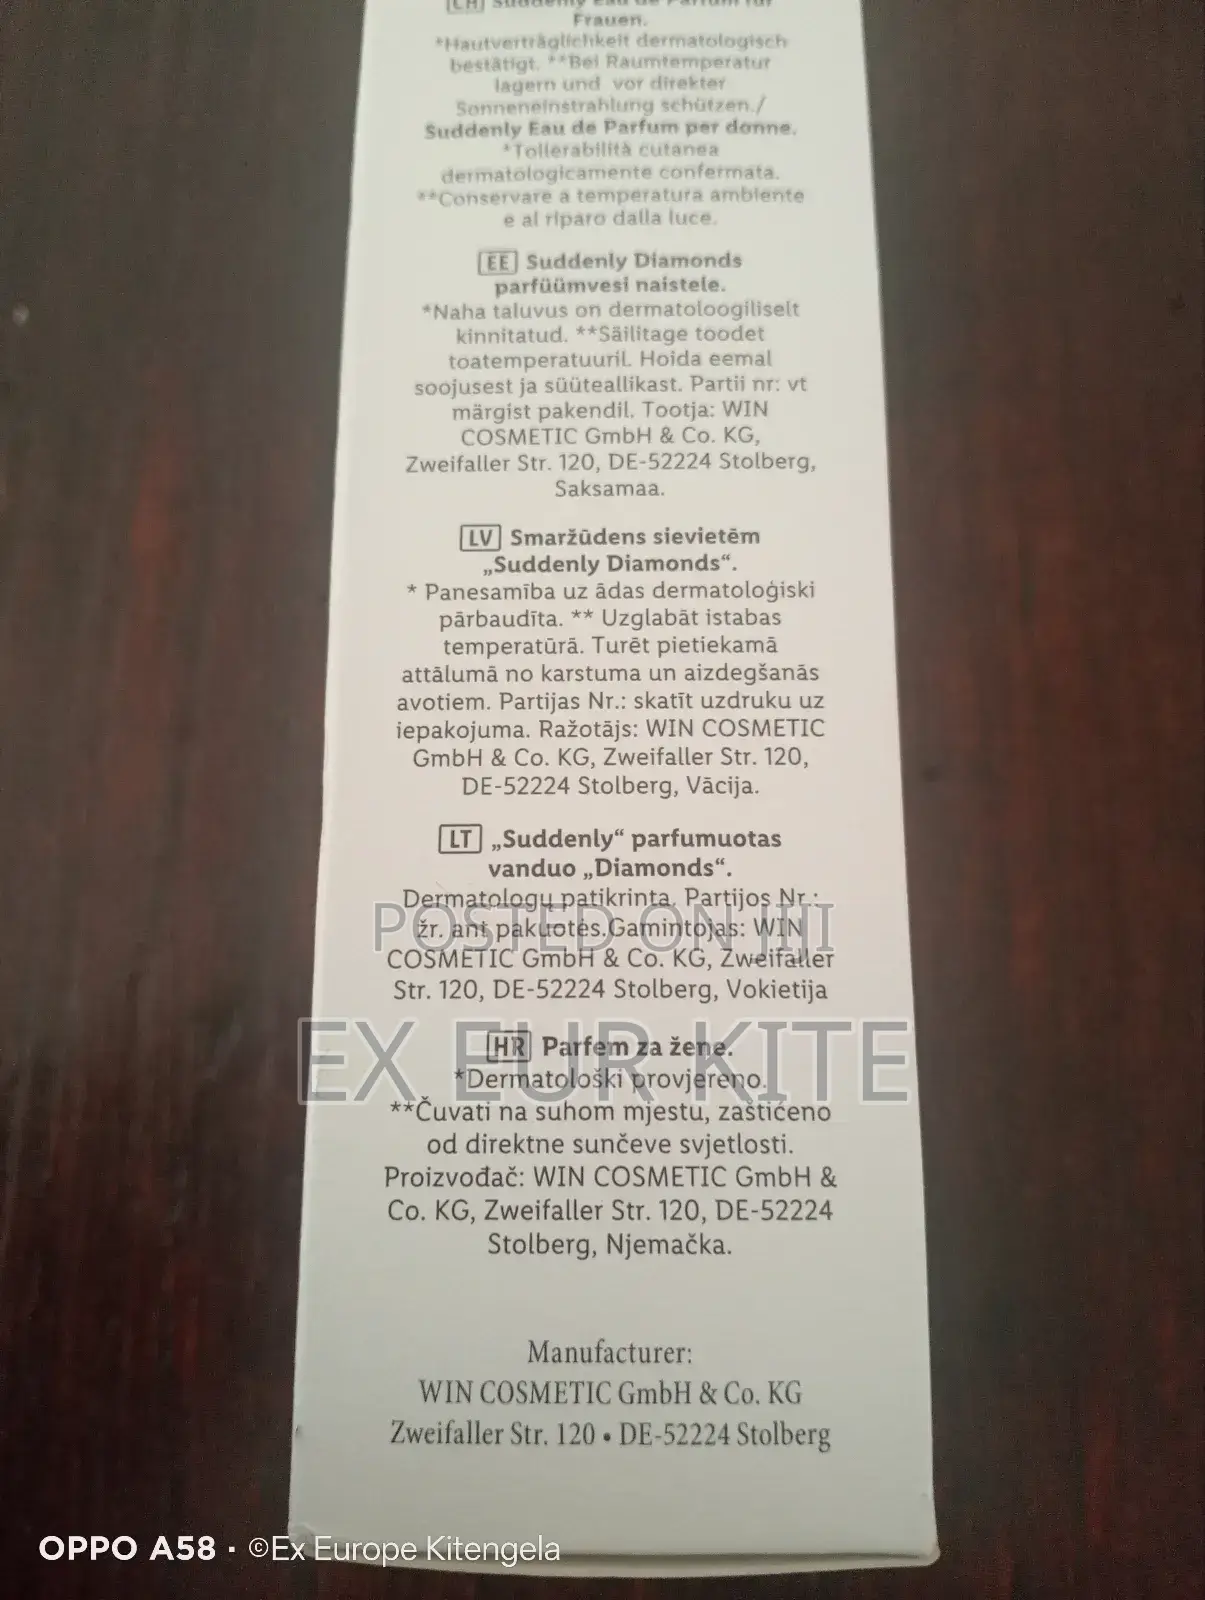 [CH] Suddenly Eau de Parfum für
Frauen.
*Hautverträglichkeit dermatologisch
bestätigt. **Bei Raumtemperatur
lagern und vor direkter
Sonneneinstrahlung schützen./
Suddenly Eau de Parfum per donne.
*Tollerabilità cutanea
dermatologicamente confermata.
**Conservare a temperatura ambiente
e al riparo dalla luce.
EE Suddenly Diamonds
parfüümvesi naistele.
*Naha taluvus on dermatoloogiliselt
kinnitatud. **Säilitage toodet
toatemperatuuril. Hoida eemal
soojusest ja süüteallikast. Partii nr: vt
märgist pakendil. Tootja: WIN
COSMETIC GmbH & Co. KG,
Zweifaller Str. 120, DE-52224 Stolberg,
Saksamaa.
LV Smaržūdens sievietēm
„Suddenly Diamonds“.
* Panesamība uz ādas dermatoloģiski
pārbaudīta. ** Uzglabāt istabas
temperatūrā. Turēt pietiekamā
attālumā no karstuma un aizdegšanās
avotiem. Partijas Nr.: skatīt uzdruku uz
iepakojuma. Ražotājs: WIN COSMETIC
GmbH & Co. KG, Zweifaller Str. 120,
DE-52224 Stolberg, Vācija.
LT „Suddenly“ parfumuotas
vanduo „Diamonds“.
Dermatologų patikrinta. Partijos Nr.:
POSTED ON JIJI
žr. ant pakuotės.Gamintojas: WIN
COSMETIC GmbH & Co. KG, Zweifaller
Str. 120, DE-52224 Stolberg, Vokietija
EX EUR KITE
HR Parfem za žene.
*Dermatološki provjereno.
**Čuvati na suhom mjestu, zaštićeno
od direktne sunčeve svjetlosti.
Proizvođač: WIN COSMETIC GmbH &
Co. KG, Zweifaller Str. 120, DE-52224
Stolberg, Njemačka.
Manufacturer:
WIN COSMETIC GmbH & Co. KG
Zweifaller Str. 120 • DE-52224 Stolberg
OPPO A58 · ©Ex Europe Kitengela